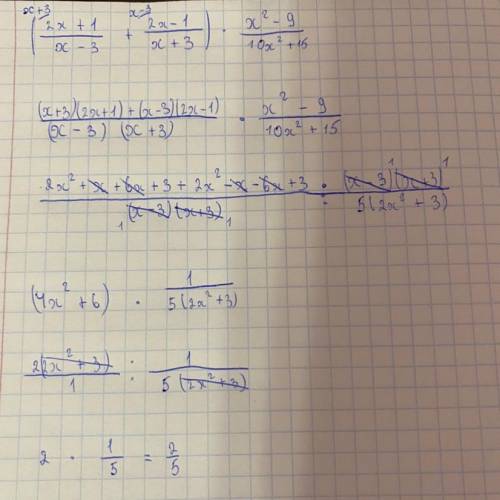 x+3 x-3
( (2x + 1)/(x - 3) + (2x - 1)/(x + 3) ) · (x² - 9)/(10x² + 15)
((x+3)(2x+1) + (x-3)(2x-1))/((x - 3) (x + 3)) · (x² - 9)/(10x² + 15)
(2x² + x + 6x + 3 + 2x² - x - 6x + 3)/(1 (x-3) (x+3) 1) : ((x-3) 1 (x+3) 1)/(5(2x² + 3))
(4x² + 6) · 1/(5(2x² + 3))
(2(2x² + 3))/1 : 1/(5(2x² + 3))
2 · 1/5 = 2/5